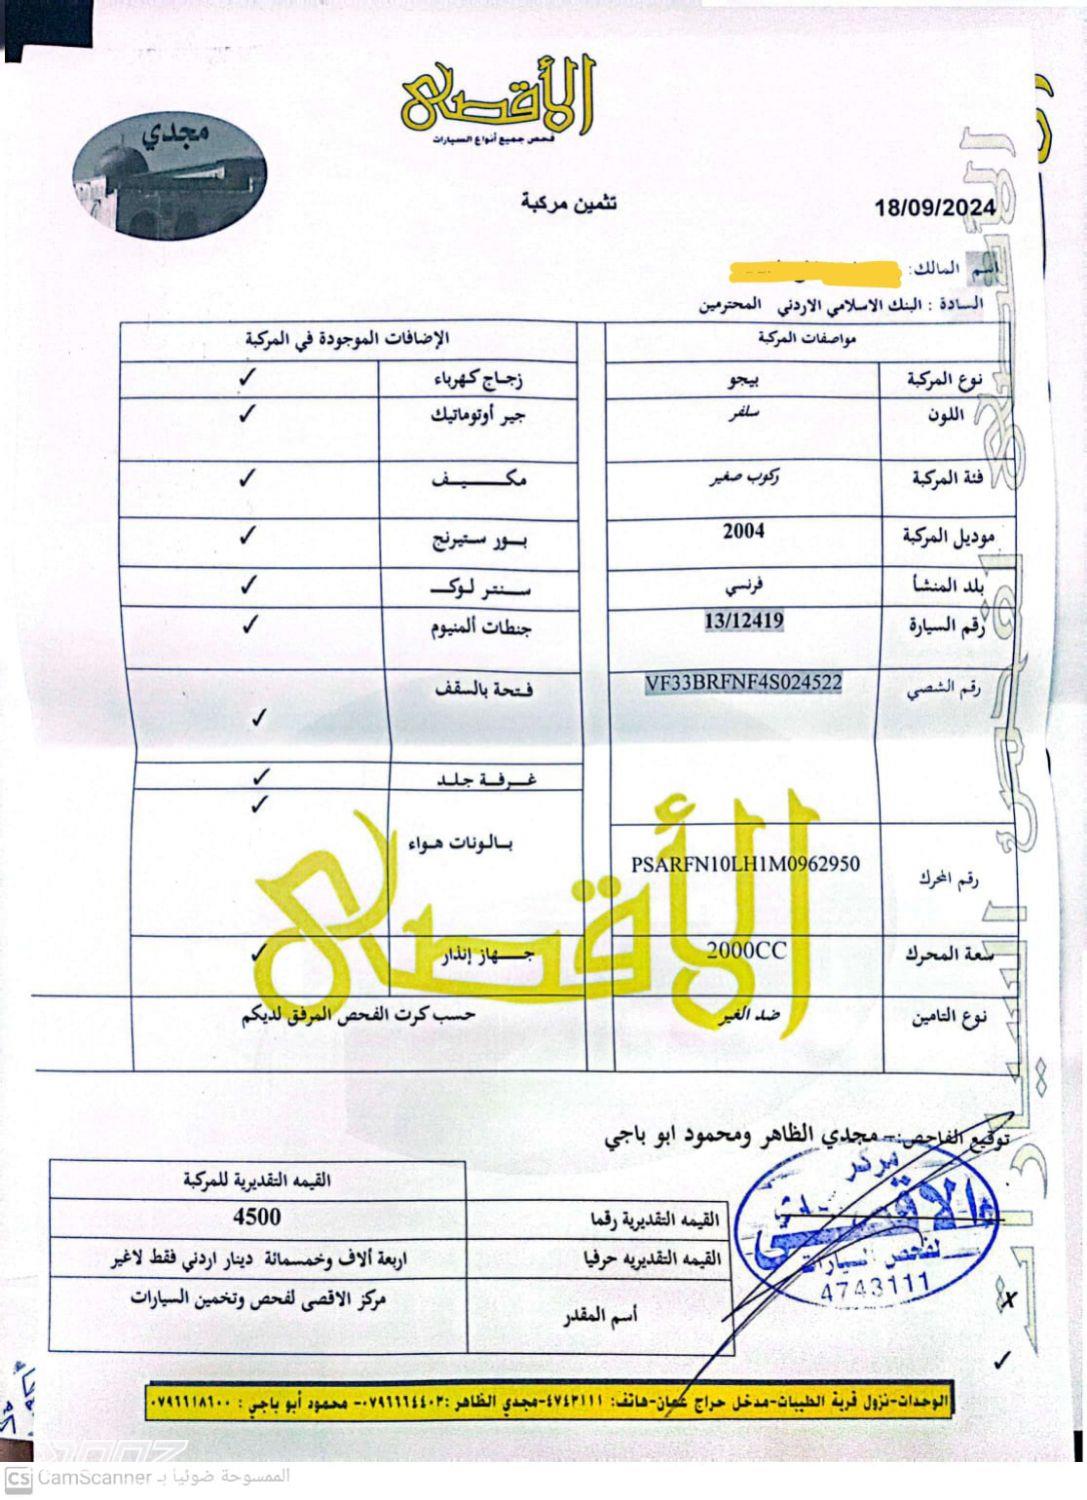 الأقصى
فحص جميع أنواع السيارات
مجدي
تثمين مركبة
18/09/2024
اسم المالك:
السادة : البنك الاسلامي الاردني المحترمين
مواصفات المركبة
الإضافات الموجودة في المركبة
نوع المركبة بيجو
زجاج كهرباء ✓
اللون سلفر
جير أوتوماتيك ✓
فئة المركبة ركوب صغير
مكـــــيـــف ✓
موديل المركبة 2004
بـــور ستيرنج ✓
بلد المنشأ فرنسي
ســـنتر لـوكـــ ✓
رقم السيارة 13/12419
جنطات ألمنيوم ✓
رقم الشصي VF33BRFNF4S024522
فـتحة بالسقف ✓
غــرفــة جلــد ✓
بــالونات هـواء ✓
رقم المحرك PSARFN10LH1M0962950
سعة المحرك 2000CC
جــــهاز إنذار ✓
نوع التامين ضد الغير
حسب كرت الفحص المرفق لديكم
الأقصى
توقيع الفاحص:– مجدي الظاهر ومحمود ابو باجي
القيمه التقديرية للمركبة
القيمه التقديرية رقما 4500
القيمه التقديريه حرفيا اربعة ألاف وخمسمائة دينار اردني فقط لاغير
أسم المقدر مركز الاقصى لفحص وتخمين السيارات
مركز
الاقصى
لفحص السيارات
4743111
الوحدات-نزول قرية الطيبات-مدخل حراج عمان-هاتف: ٤٧٤٣١١١-مجدي الظاهر :٠٧٩٦٦٦٤٤٠٣- محمود أبو باجي : ٠٧٩٦٦١٨٦٠٠
CS CamScanner الممسوحة ضوئيا بـ